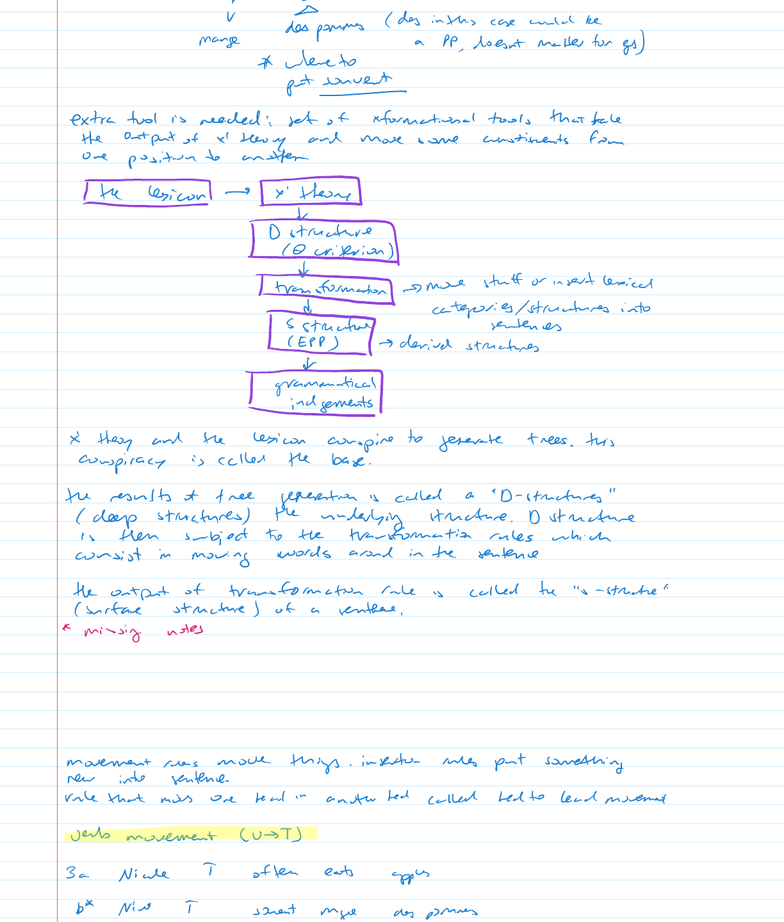 V
mange
des pommes (des in this case could be
a PP, doesnt matter for gs)
* where to
put souvent
extra tool is needed: set of xformational tools that take
the output of x' theory and move some constituents from
one position to another
the lexicon → x' theory
D structure
(Θ criterion)
transformation → move stuff or insert lexical
categories/structures into
sentences
S structure
(EPP) → derived structures
grammatical
judgements
x' theory and the lexicon conspire to generate trees. this
conspiracy is called the base.
the results of tree generation is called a "D-structures"
(deep structures) the underlying structure. D structure
is then subject to the transformation rules which
consist in moving words around in the sentence
the output of transformation rule is called the "s-structure"
(surface structure) of a sentence.
* missing notes
movement rules move things. insertion rules put something
new into sentence
rule that moves one head in another head called head to head movement
verb movement (V→T)
3a Nicole T often eats apples
b* Nicole T souvent mange des pommes